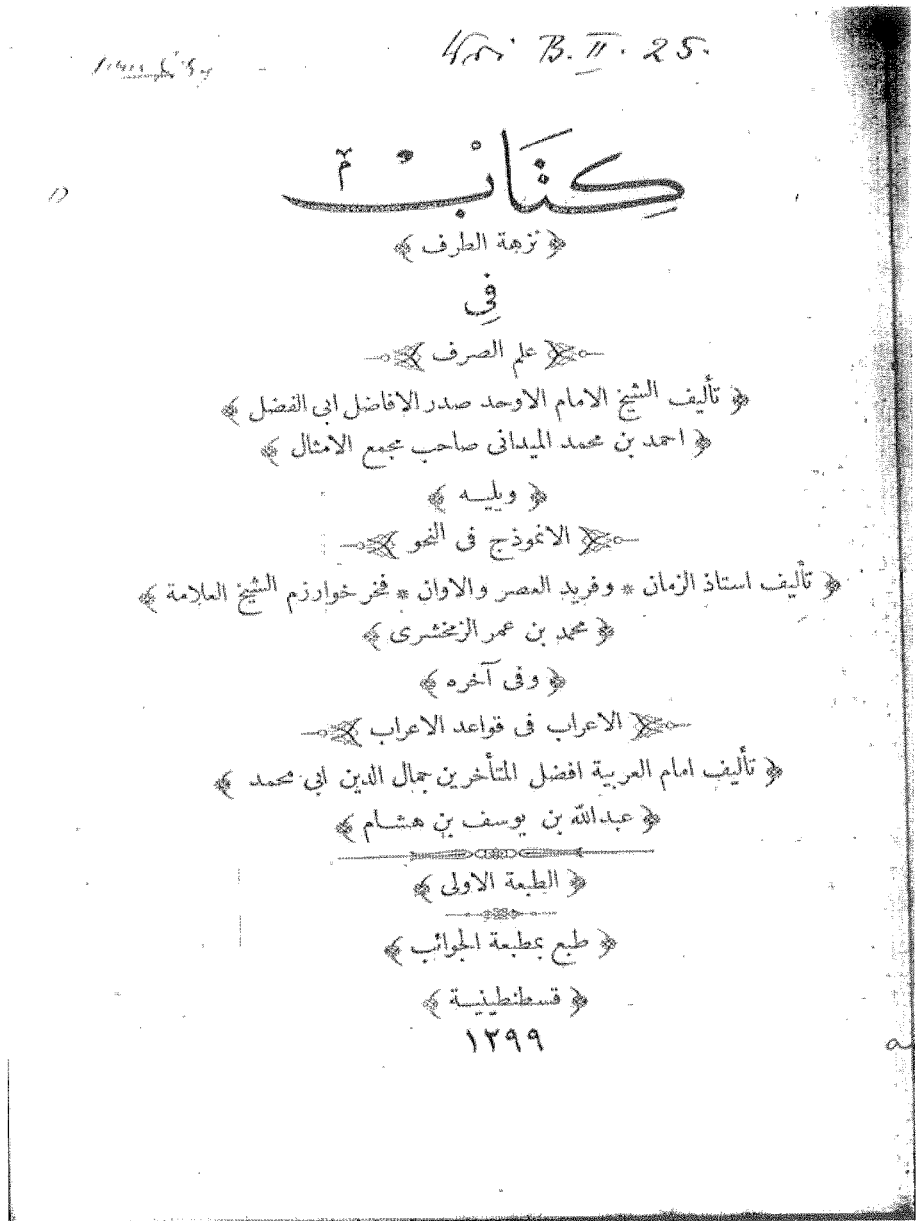 B. II. 25.
كِتَابْ
﴿ نزهة الطرف ﴾
فِي
علم الصرف
﴿ تأليف الشيخ الامام الاوحد صدر الافاضل ابى الفضل ﴾
﴿ احمد بن محمد الميدانى صاحب مجمع الامثال ﴾
﴿ ويليـه ﴾
الانموذج فى النحو
﴿ تأليف استاذ الزمان * وفريد العصر والاوان * فخر خوارزم الشيخ العلامة ﴾
﴿ محمد بن عمر الزمخشرى ﴾
﴿ وفى آخره ﴾
الاعراب فى قواعد الاعراب
﴿ تأليف امام العربية افضل المتأخرين جمال الدين ابى محمد ﴾
﴿ عبدالله بن يوسف بن هشـام ﴾
﴿ الطبعة الاولى ﴾
﴿ طبع بمطبعة الجوائب ﴾
﴿ قسطنطينيـة ﴾
١٢٩٩